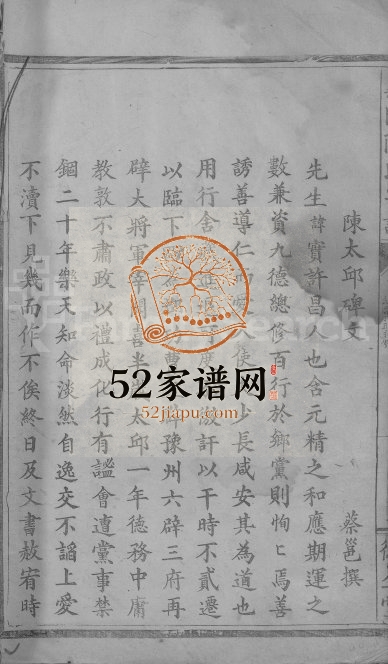 陳太邱碑文 蔡邕撰
先生諱實許昌人也含元精之和應期運之
數兼資九德總修百行於鄉黨則恂匕焉善
誘善導仁 少長咸安其為道也
用行舍 訐以干時不貳遷
以臨下 豫州六辟三府再
辟大將軍 聞喜半 太邱一年德務中庸
教敦不肅政以禮成化行有謐會遭黨事禁
錮二十年樂天知命淡然自逸交不諂上愛
不瀆下見幾而作不俟終日及文書赦宥時
52家谱网
52jiapu.com